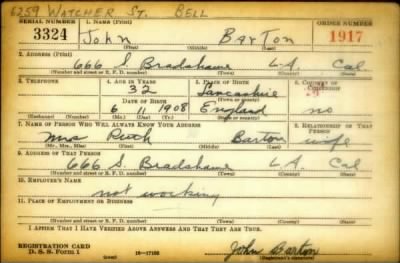 6259 WATCHER ST. BELL
SERIAL NUMBER 1. NAME (Print) ORDER NUMBER
3324 John Barton 1917
(First) (Middle) (Last)
2. ADDRESS (Print)
666 S. Bradshawe L.A. Cal
(Number and street or R. F. D. number) (Town) (County) (State)
3. TELEPHONE 4. AGE IN YEARS 5. PLACE OF BIRTH 6. COUNTRY OF CITIZENSHIP
32 Lancashire
DATE OF BIRTH (Town or county)
6 11 1908 England no
(Exchange) (Number) (Mo.) (Day) (Yr.) (State or country)
7. NAME OF PERSON WHO WILL ALWAYS KNOW YOUR ADDRESS 8. RELATIONSHIP OF THAT PERSON
Mrs Ruth Barton wife
(Mr., Mrs., Miss) (First) (Middle) (Last)
9. ADDRESS OF THAT PERSON
666 S. Bradshawe L.A. Cal
(Number and street or R. F. D. number) (Town) (County) (State)
10. EMPLOYER'S NAME
not working
11. PLACE OF EMPLOYMENT OR BUSINESS
(Number and street or R. F. D. number) (Town) (County) (State)
I AFFIRM THAT I HAVE VERIFIED ABOVE ANSWERS AND THAT THEY ARE TRUE.
REGISTRATION CARD
D. S. S. Form 1 16—17105 John Barton